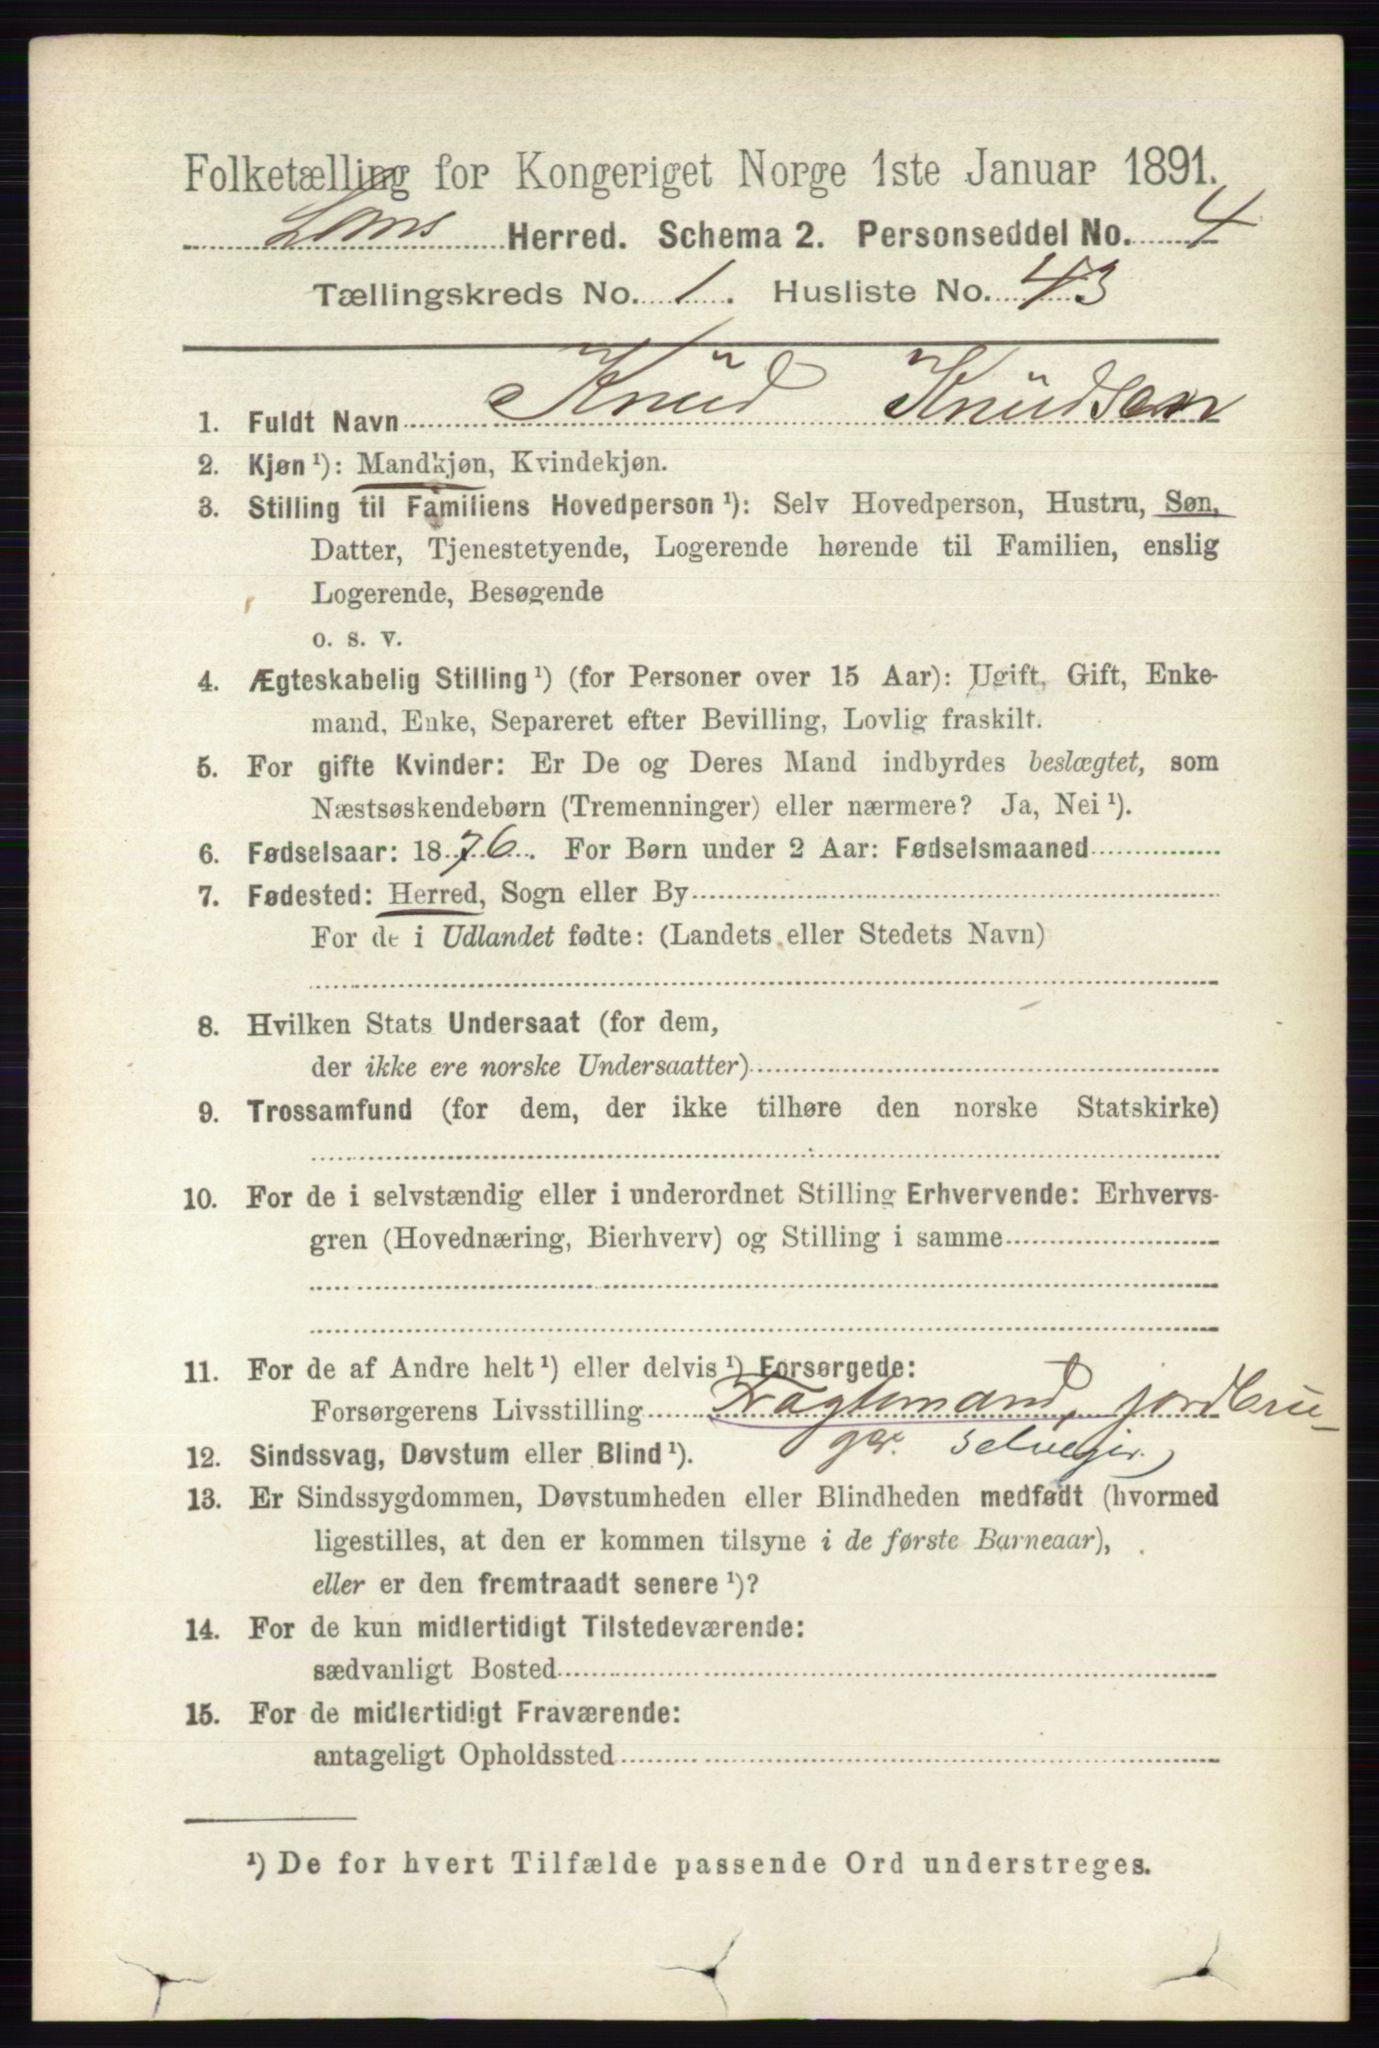 Folketælling for Kongeriget Norge 1ste Januar 1891.
Loms Herred. Schema 2. Personseddel No. 4
Tællingskreds No. 1. Husliste No. 43
1. Fuldt Navn Knud Knudsen
2. Kjøn ¹): Mandkjøn, Kvindekjøn.
3. Stilling til Familiens Hovedperson ¹): Selv Hovedperson, Hustru, Søn,
Datter, Tjenestetyende, Logerende hørende til Familien, enslig
Logerende, Besøgende
o. s. v.
4. Ægteskabelig Stilling ¹) (for Personer over 15 Aar): Ugift, Gift, Enke-
mand, Enke, Separeret efter Bevilling, Lovlig fraskilt.
5. For gifte Kvinder: Er De og Deres Mand indbyrdes beslægtet, som
Næstsøskendebørn (Tremenninger) eller nærmere? Ja, Nei ¹).
6. Fødselsaar: 1876. For Børn under 2 Aar: Fødselsmaaned
7. Fødested: Herred, Sogn eller By
For de i Udlandet fødte: (Landets eller Stedets Navn)
8. Hvilken Stats Undersaat (for dem,
der ikke ere norske Undersaatter)
9. Trossamfund (for dem, der ikke tilhøre den norske Statskirke)
10. For de i selvstændig eller i underordnet Stilling Erhvervende: Erhvervs-
gren (Hovednæring, Bierhverv) og Stilling i samme
11. For de af Andre helt ¹) eller delvis ¹) Forsørgede:
Forsørgerens Livsstilling Fragtemand, jordbru-
ger. Selveier.
12. Sindssvag, Døvstum eller Blind ¹).
13. Er Sindssygdommen, Døvstumheden eller Blindheden medfødt (hvormed
ligestilles, at den er kommen tilsyne i de første Barneaar),
eller er den fremtraadt senere ¹)?
14. For de kun midlertidigt Tilstedeværende:
sædvanligt Bosted
15. For de midlertidigt Fraværende:
antageligt Opholdssted
¹) De for hvert Tilfælde passende Ord understreges.